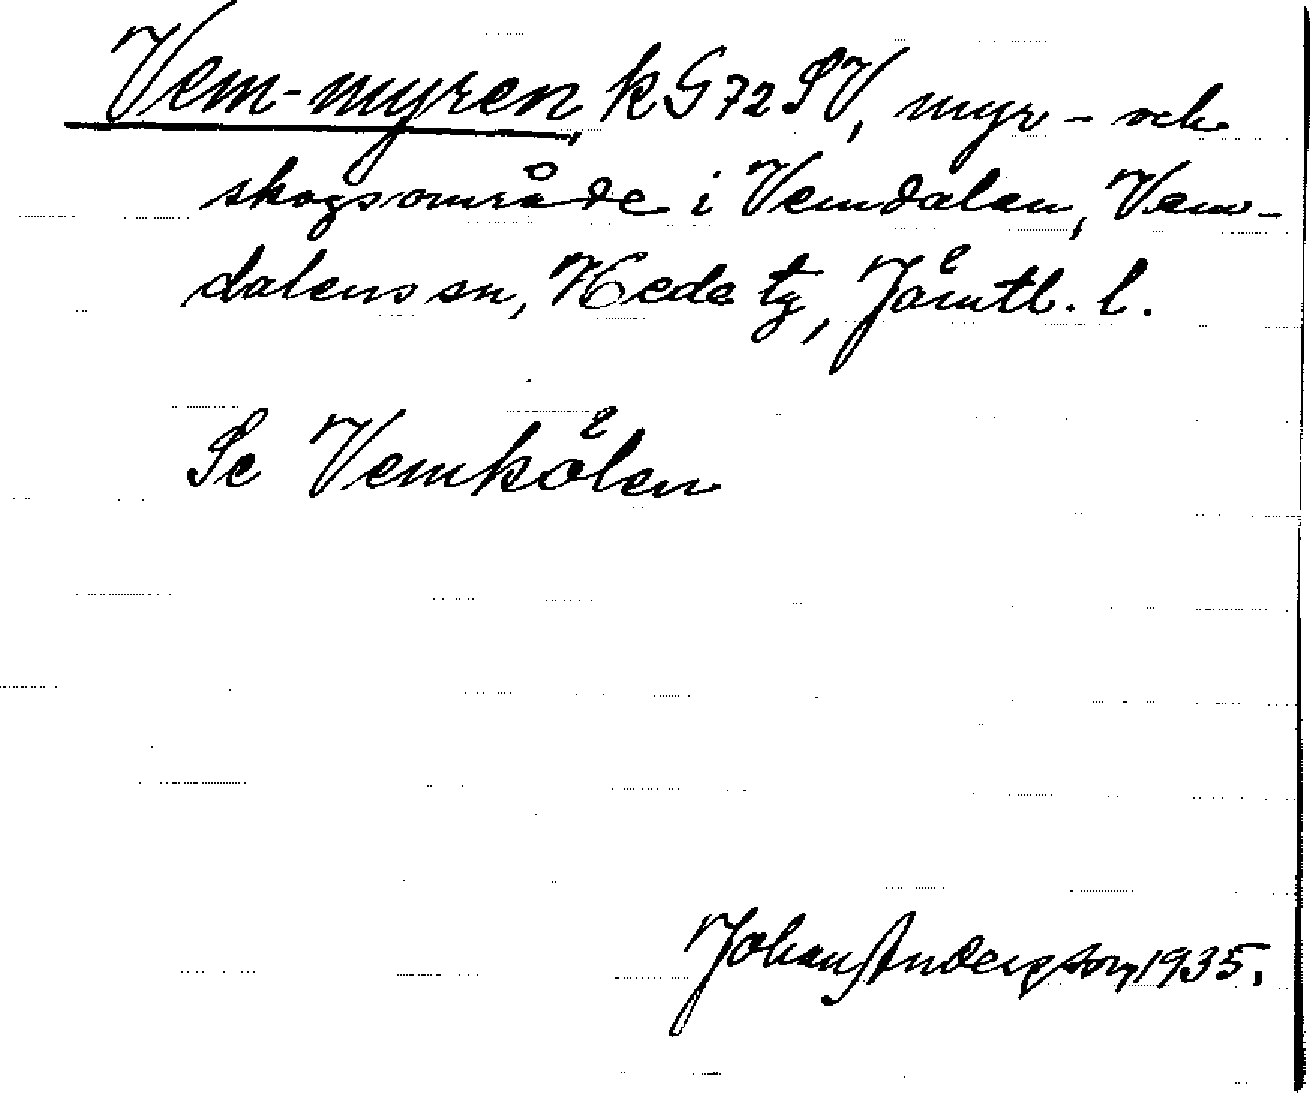 Vem-myren k G 72 SV, myr- och
skogsområde i Vemdalen, Vem-
dalens sn, Hede tg, Jämtl. l.
Se Vemkölen
Johan Anderson, 1935.